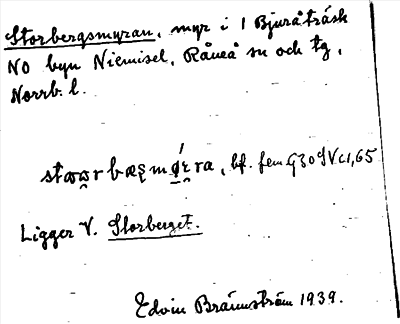 Storbergsmyran, myr i 1 Bjuråträsk
NO byn Niemisel, Råneå sn och tg,
Norrb. l.
bf. fem G30SVc1,65
Ligger V. Storberget.
Edvin Brännström 1939.